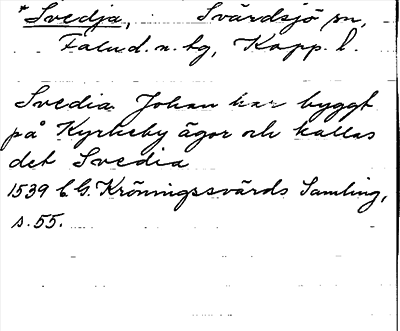 *Svedja, Svärdsjö sn,
Falu d. n. tg, Kopp. l.
Svedia Johan har byggt
på Kyrkeby ägor och kallas
det Svedia
1539 C. G. Kröningssvärds Samling,
s. 55.